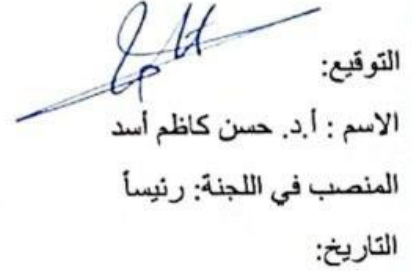 التوقيع:
الاسم : أ.د. حسن كاظم أسد
المنصب في اللجنة: رئيساً
التاريخ: